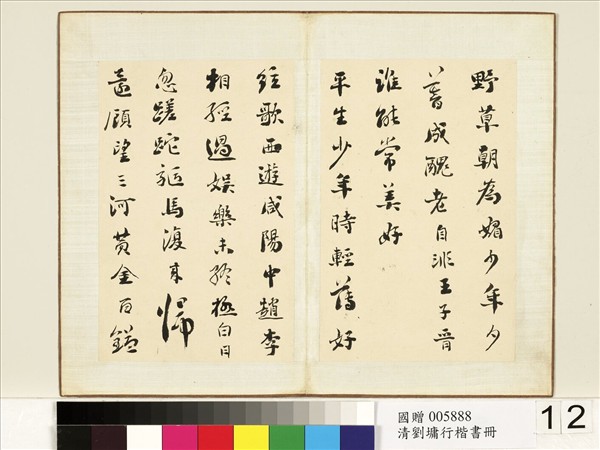 野草朝為媚少年夕
暮成醜老自非王子晉
誰能常美好
平生少年時輕薄好
絃歌西遊咸陽中趙李
相經過娛樂未終極白日
忽蹉跎驅馬復來歸
還顧望三河黃金百鎰
國贈 005888
清劉墉行楷書冊
12